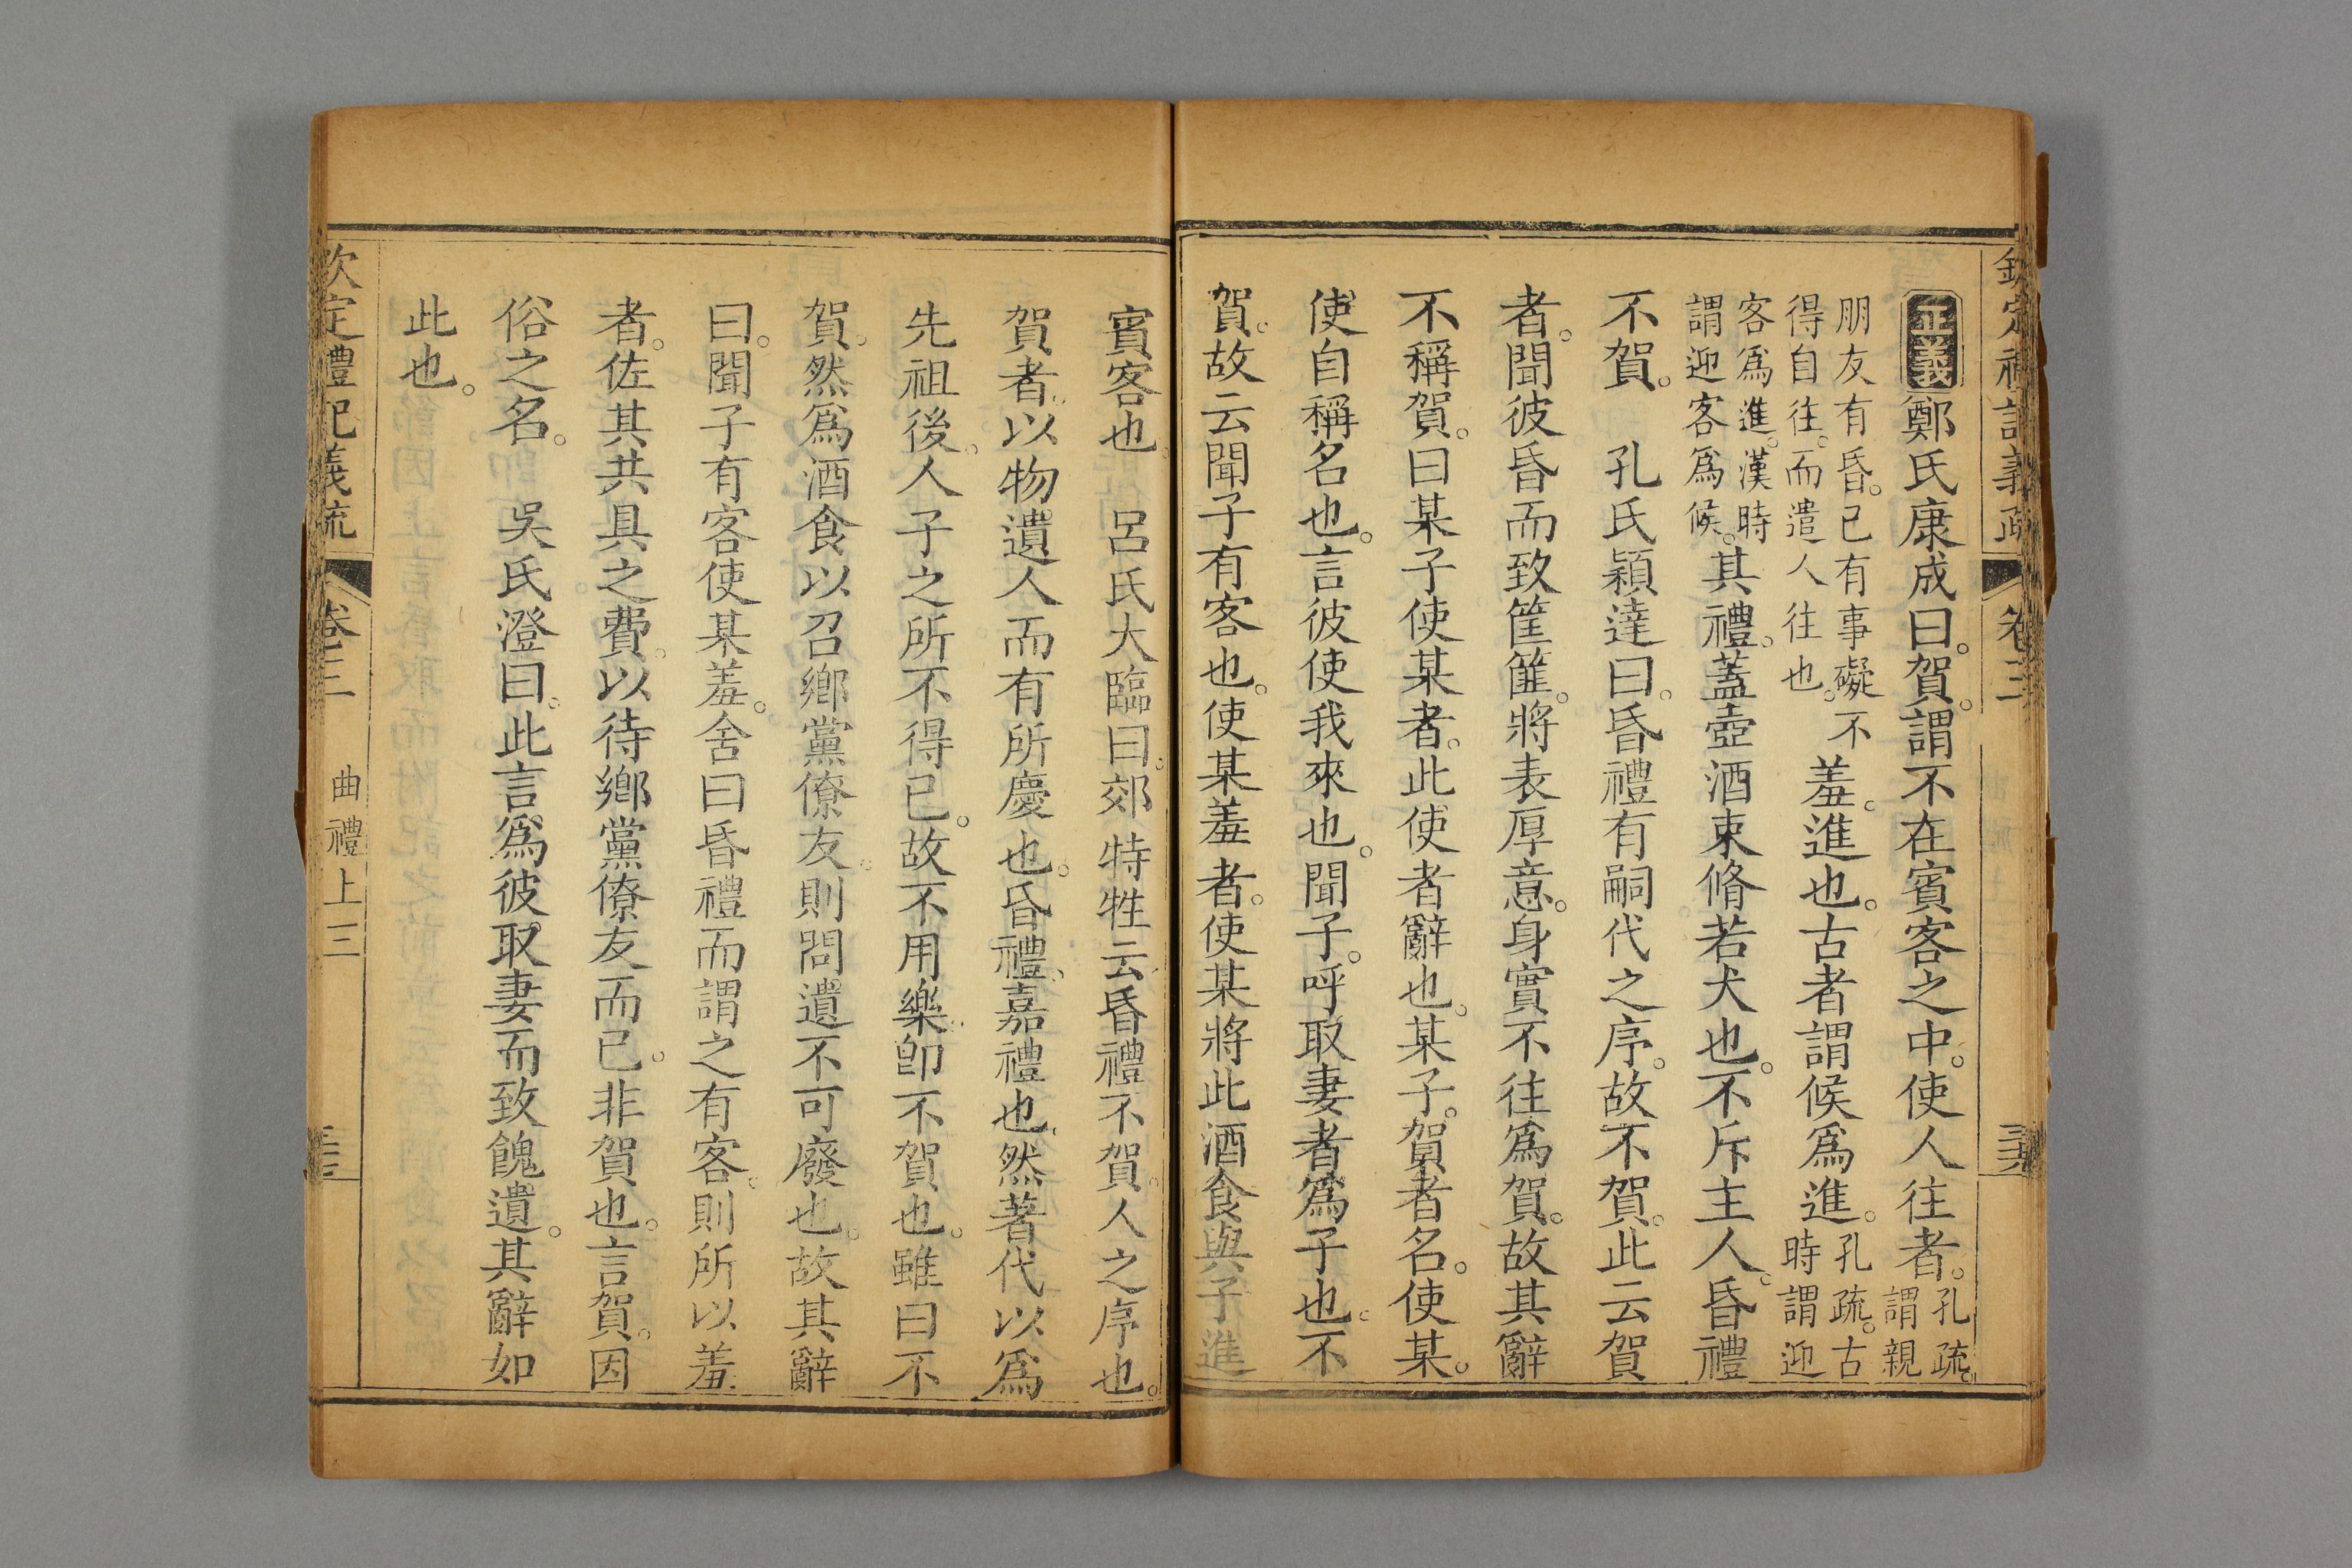 欽定禮記義疏 卷三 三六
正義鄭氏康成曰。賀。謂不在賓客之中。使人往者。孔疏。謂親
朋友有昏。已有事礙不得自往。而遣人往也。羞。進也。古者謂候爲進。孔疏。古時謂迎
客爲進。漢時謂迎客爲候。其禮。蓋壺酒束脩若犬也。不斥主人。昏禮
不賀。 孔氏穎達曰。昏禮有嗣代之序。故不賀。此云賀
者。聞彼昏而致筐篚。將表厚意。身實不往爲賀。故其辭
不稱賀。曰某子使某者。此使者辭也。某子。賀者名。使某。
使自稱名也。言彼使我來也。聞子。呼取妻者爲子也。不
賀。故云聞子有客也。使某羞者。使某將此酒食與子進
賓客也。 呂氏大臨曰。郊特牲云昏禮不賀。人之序也。
賀者。以物遺人而有所慶也。昏禮、嘉禮也。然著代以爲
先祖後。人子之所不得已。故不用樂。卽不賀也。雖曰不
賀。然爲酒食以召鄉黨僚友。則問遺不可廢也。故其辭
曰。聞子有客使某羞。舍曰昏禮而謂之有客。則所以羞
者。佐其共具之費。以待鄉黨僚友而已。非賀也。言賀。因
俗之名。 吳氏澄曰。此言爲彼取妻而致餽遺。其辭如
此也。
欽定禮記義疏 卷三 曲禮上三